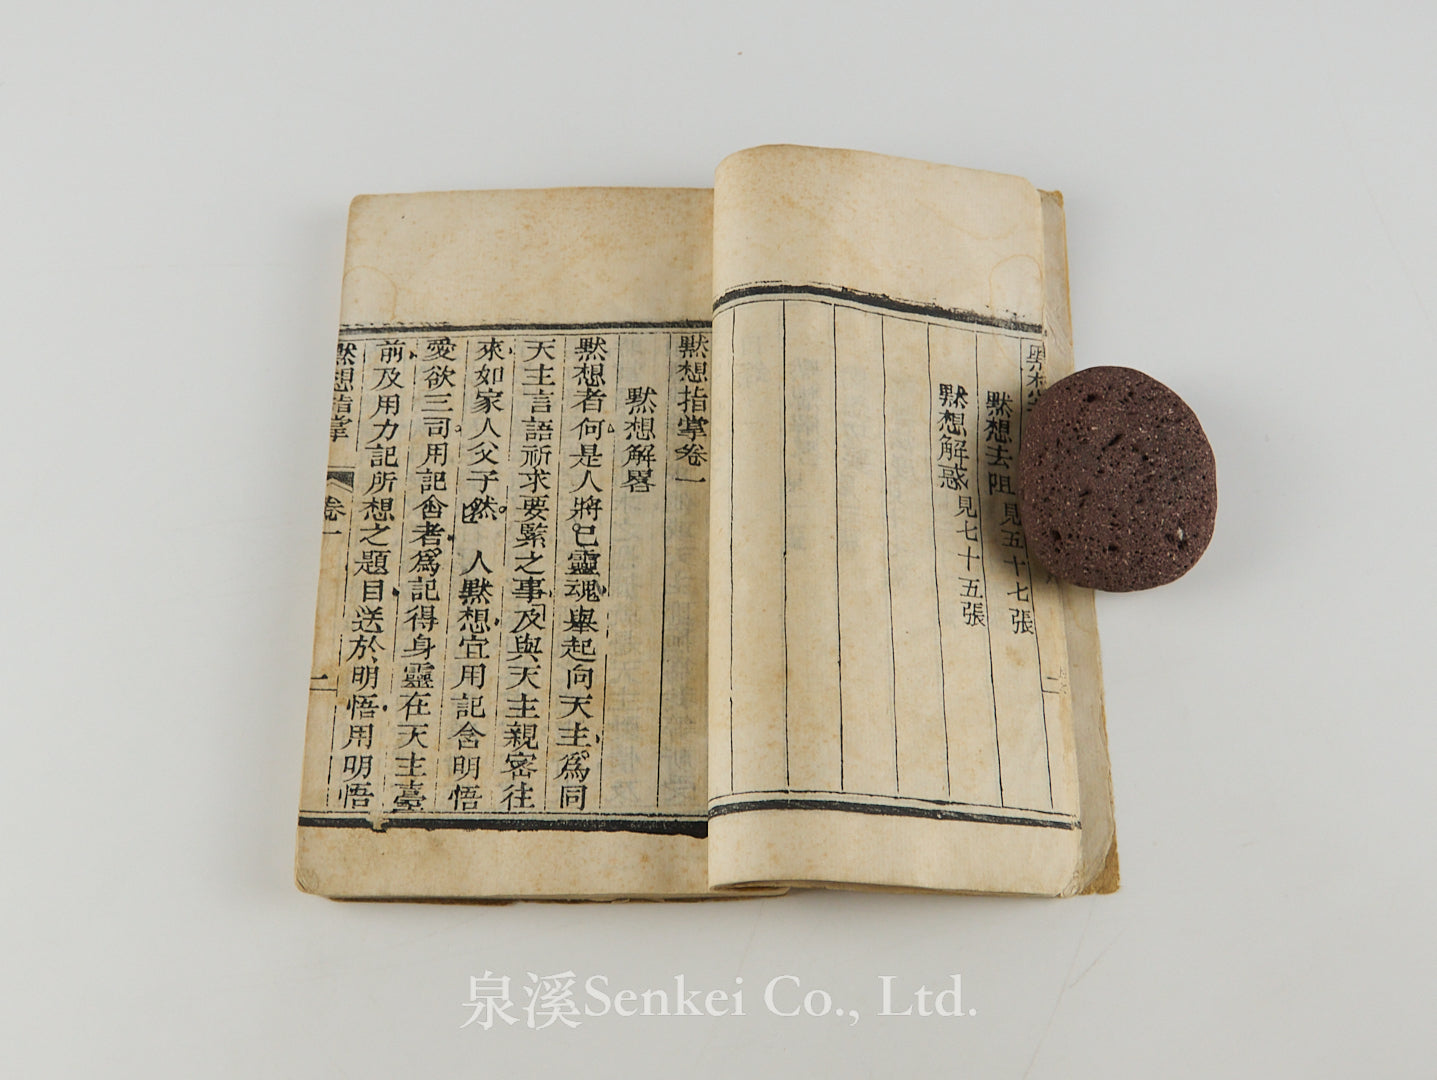 默想去阻見五十七張
默想解惑見七十五張
二
默想指掌卷一
默想解畧
默想者何是人將己靈魂舉起向天主爲同
天主言語祈求要緊之事及與天主親密往
來如家人父子然人默想宜用記含明悟
愛欲三司用記含者爲記得身靈在天主臺
前及用力記所想之題目送於明悟用明悟
默想指掌
卷一
二
泉溪Senkei Co., Ltd.